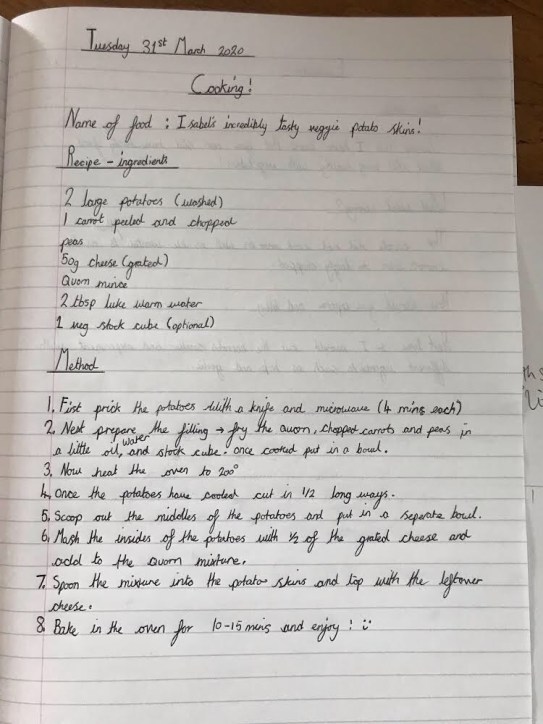 Tuesday 31st March 2020
Cooking!
Name of food : Isabel's incredibly tasty veggie potato skins!
Recipe - ingredients
2 large potatoes (washed)
1 carrot peeled and chopped
peas
50g cheese (grated)
Quorn mince
2 tbsp luke warm water
1 veg stock cube (optional)
Method
1. First prick the potatoes with a knife and microwave (4 mins each)
2. Next prepare the filling → fry the quorn, chopped carrots and peas in
a little oil, water and stock cube. once cooked put in a bowl.
3. Now heat the oven to 200°
4. Once the potatoes have cooked cut in 1/2 long ways.
5. Scoop out the middles of the potatoes and put in a seperate bowl.
6. Mash the insides of the potatoes with 1/2 of the grated cheese and
add to the quorn mixture.
7. Spoon the mixture into the potato skins and top with the leftover
cheese.
8. Bake in the oven for 10-15 mins and enjoy! :)